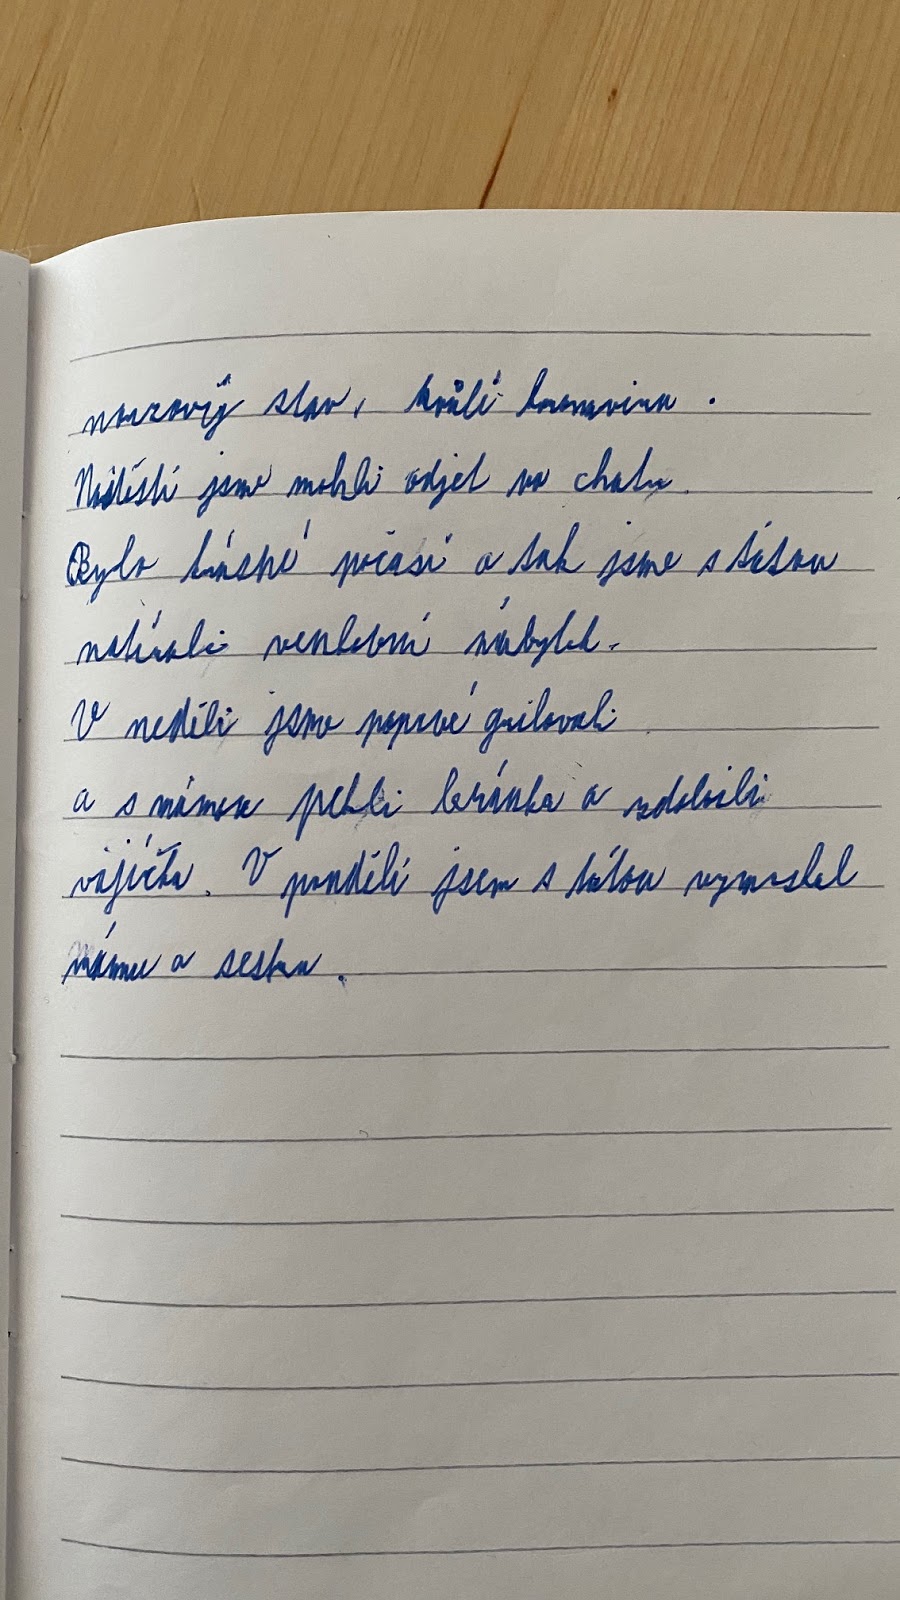 nouzový stav, kvůli koronaviru.
Naštěstí jsme mohli odjet na chatu.
Bylo krásné počasí a tak jsme s tátou
natírali venkovní nábytek.
V neděli jsme poprvé grilovali
a s mámou pekli beránka a ozdobili
vajíčka. V pondělí jsem s tátou vymrskal
mámu a sestru.